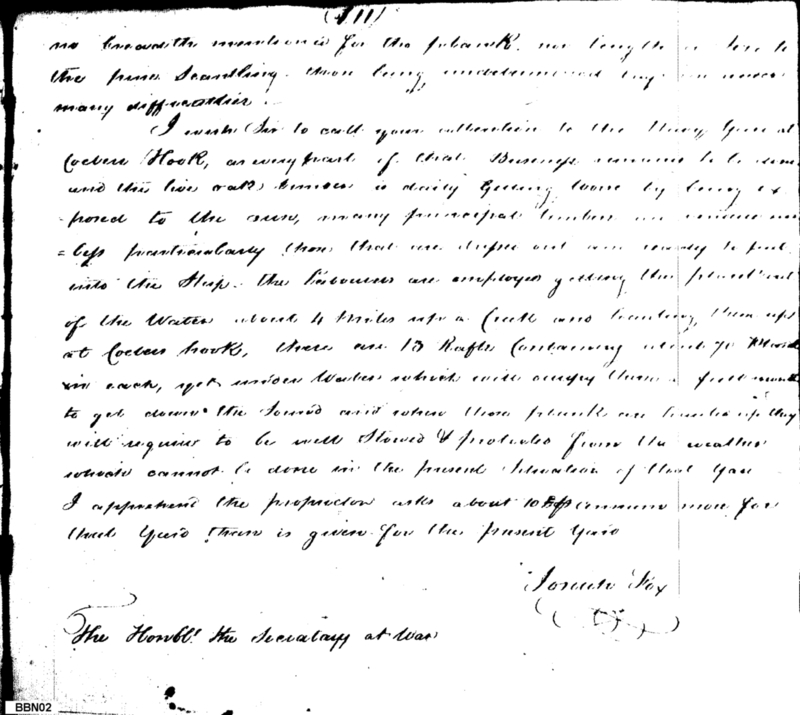 (111)
no breadth mentioned for the plank. nor length
the pine Scandling. thon being undetermined
many difficulties.
I wish Sir to call your attention to the Navy Yard at
Cocken Hook, as every part of that Business remains to be done
and the live oak timber is daily Getting worse by being ex
-posed to the sun, many principal timbers are
=less particularly those that are and are ready to put
into the Ship. the Labourers are employed getting the plank out
of the Water about 4 Miles up a Creek and hauling them up
at Cocken hook, there are 13 Rafts Containing about 70 Plank
in each, yet under Water which will occupy them a full month
to get down the Sound and when those plank are hauled up they
will require to be well Stowed & protected from the weather
which cannot be done in the present Situation of that Yard
I apprehend the proprietor asks about 10 annum more for
that Yard than is given for the present Yard
Fox
The Honbl. the Secretary at War
BBN02